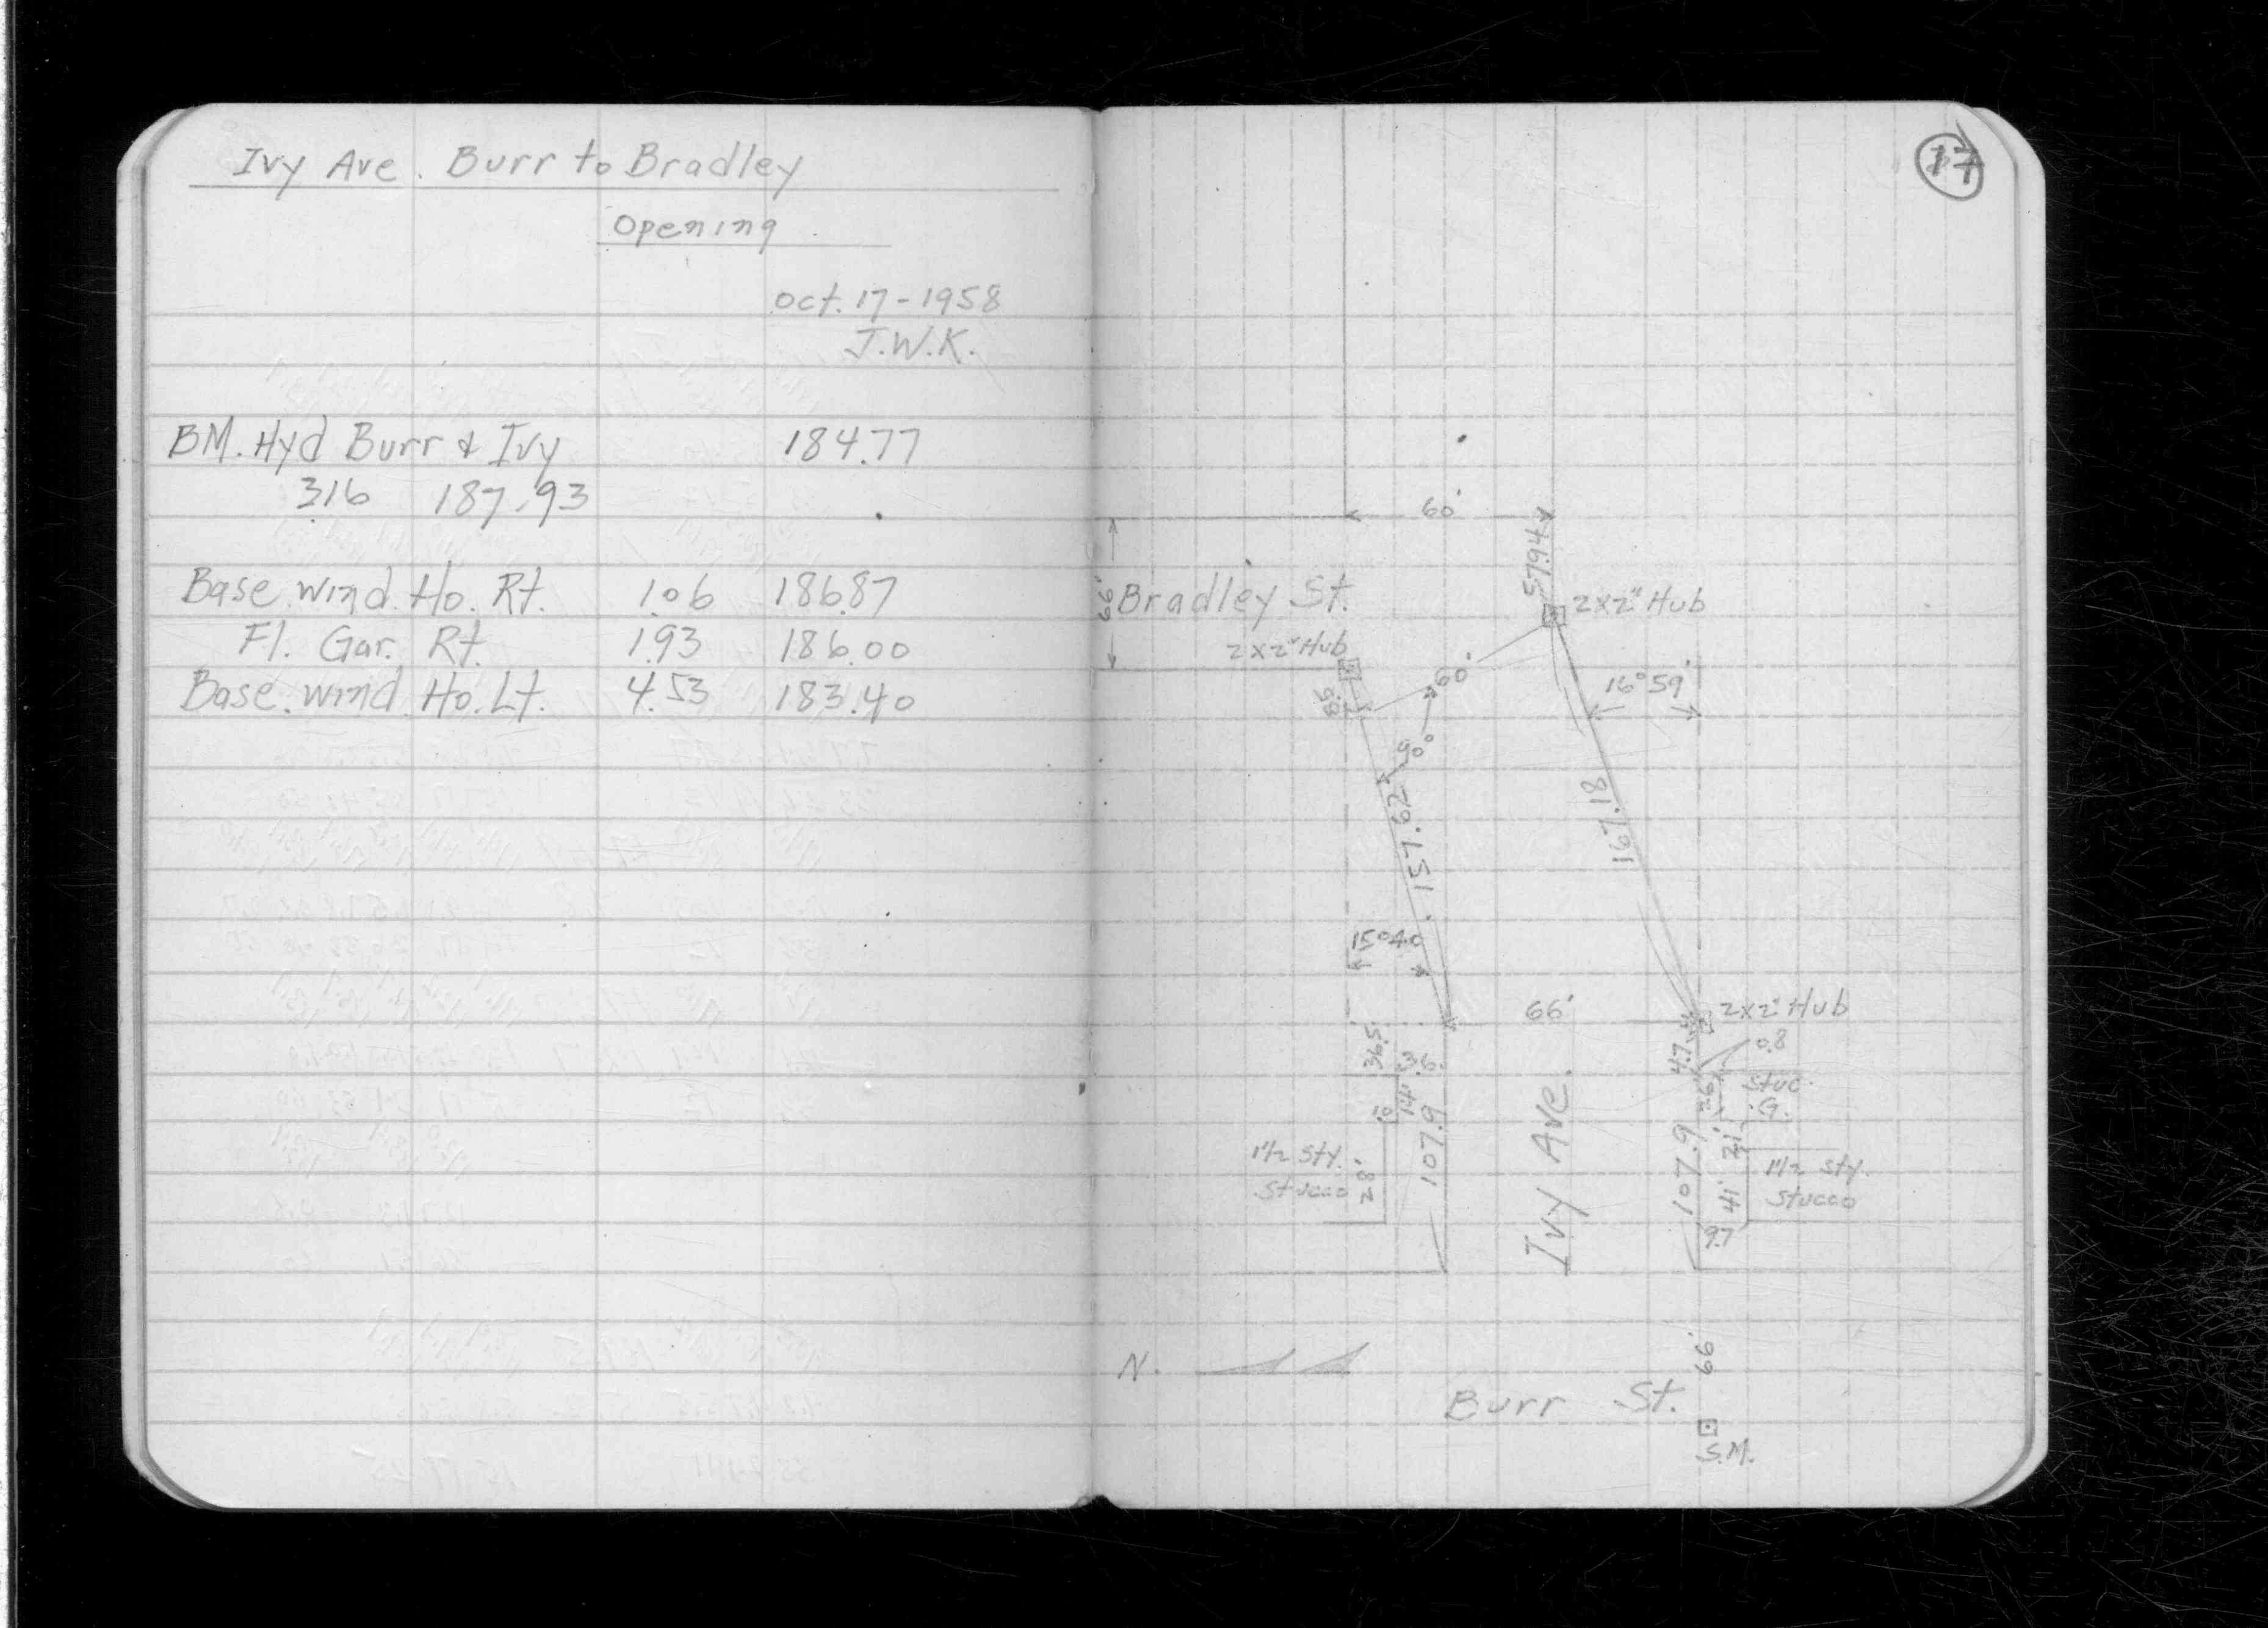 Ivy Ave. Burr to Bradley
Opening
Oct. 17-1958
J.W.K.
BM. Hyd Burr & Ivy 184.77
3.16 187.93
Base wind. Ho. Rt. 1.06 186.87
Fl. Gar. Rt. 1.93 186.00
Base. wind. Ho. Lt. 4.53 183.40
17
60'
66'
57.94
Bradley St.
2x2" Hub
2x2" Hub
60'
16°59'
90°
157.62
167.18
15°40
66'
2x2" Hub
36.5
3.6
4.7
0.8
14'
26
Stuc.
G.
107.9
107.9
21'
1½ Sty.
Stucco
28'
1½ Sty.
Stucco
41'
9.7
Ivy Ave.
66'
N.
Burr St.
S.M.